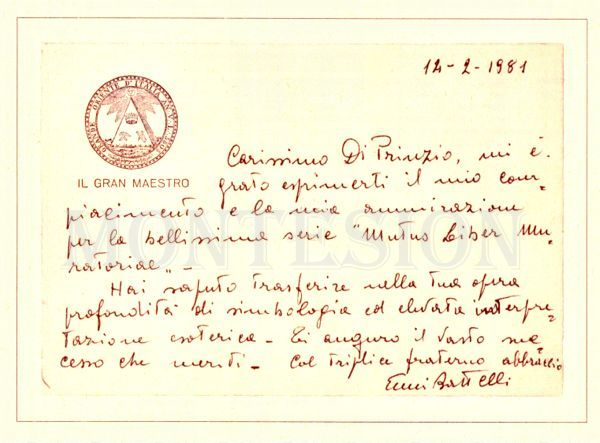 12-2-1981
GRANDE ORIENTE D'ITALIA
IL GRAN MAESTRO
Carissimo Di Prinzio, mi è
grato esprimerti il mio com-
piacimento e la mia ammirazione
per la bellissima serie "Mutus Liber Mu-
ratoriae" -
Hai saputo trasferire nella tua opera
profondità di simbologia ed elevata interpre-
tazione esoterica - Ti auguro il vasto suc-
cesso che meriti - Col triplice fraterno abbraccio
Ennio Battelli
MONTESION